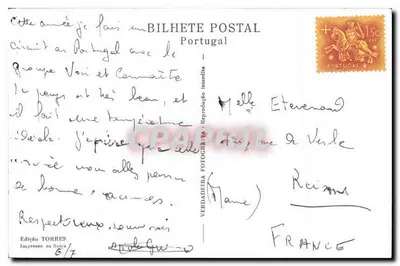 BILHETE POSTAL
Portugal
1$50
PORTUGAL
Cette année je fais un
circuit au Portugal avec le
groupe Voir et Connaître
Le pays est très beau, et
il fait une température
idéale. J'espère que cette
année vous allez passer
de bonnes vacances.
Respectueux souvenirs
6/7
Edição TORRES
Impresso na Suíça
VERDADEIRA FOTOGRAFIA - Reprodução interdita
Melle
rue de Vesle
Reims
(Marne)
FRANCE